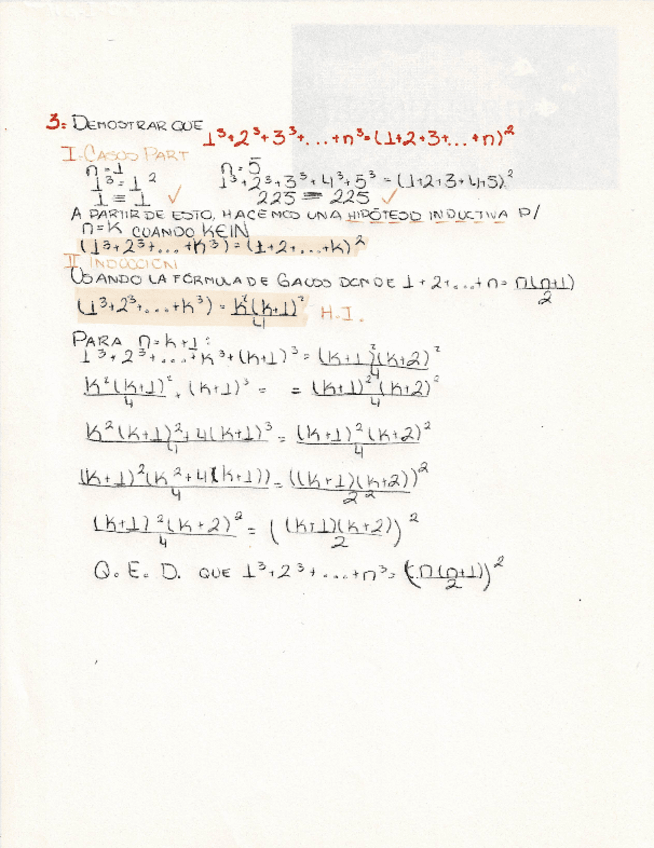 3= DEMOSTRAR QUE 1³+2³+3³+...+n³=(1+2+3+...+n)²
I-CASOS PART
n=1 n=5
1³=1² 1³+2³+3³+4³+5³=(1+2+3+4+5)²
1=1 ✓ 225=225 ✓
A PARTIR DE ESTO, HACEMOS UNA HIPÓTESIS INDUCTIVA P/
n=K CUANDO KEIN
(1³+2³+...+K³)=(1+2+...+K)²
II INDUCCIÓN
USANDO LA FÓRMULA DE GAUSS DONDE 1+2+...+n=n(n+1)/2
(1³+2³+...+K³)=K²(K+1)²/4 H.I.
PARA n=k+1:
1³+2³+...+K³+(K+1)³=(K+1)²(K+2)²/4
K²(K+1)²/4+(K+1)³= =(K+1)²(K+2)²/4
K²(K+1)²+4(K+1)³/4=(K+1)²(K+2)²/4
(K+1)²(K²+4(K+1))/4=((K+1)(K+2))²/2²
(K+1)²(K+2)²/4=((K+1)(K+2)/2)²
Q.E.D. QUE 1³+2³+...+n³=(n(n+1)/2)²